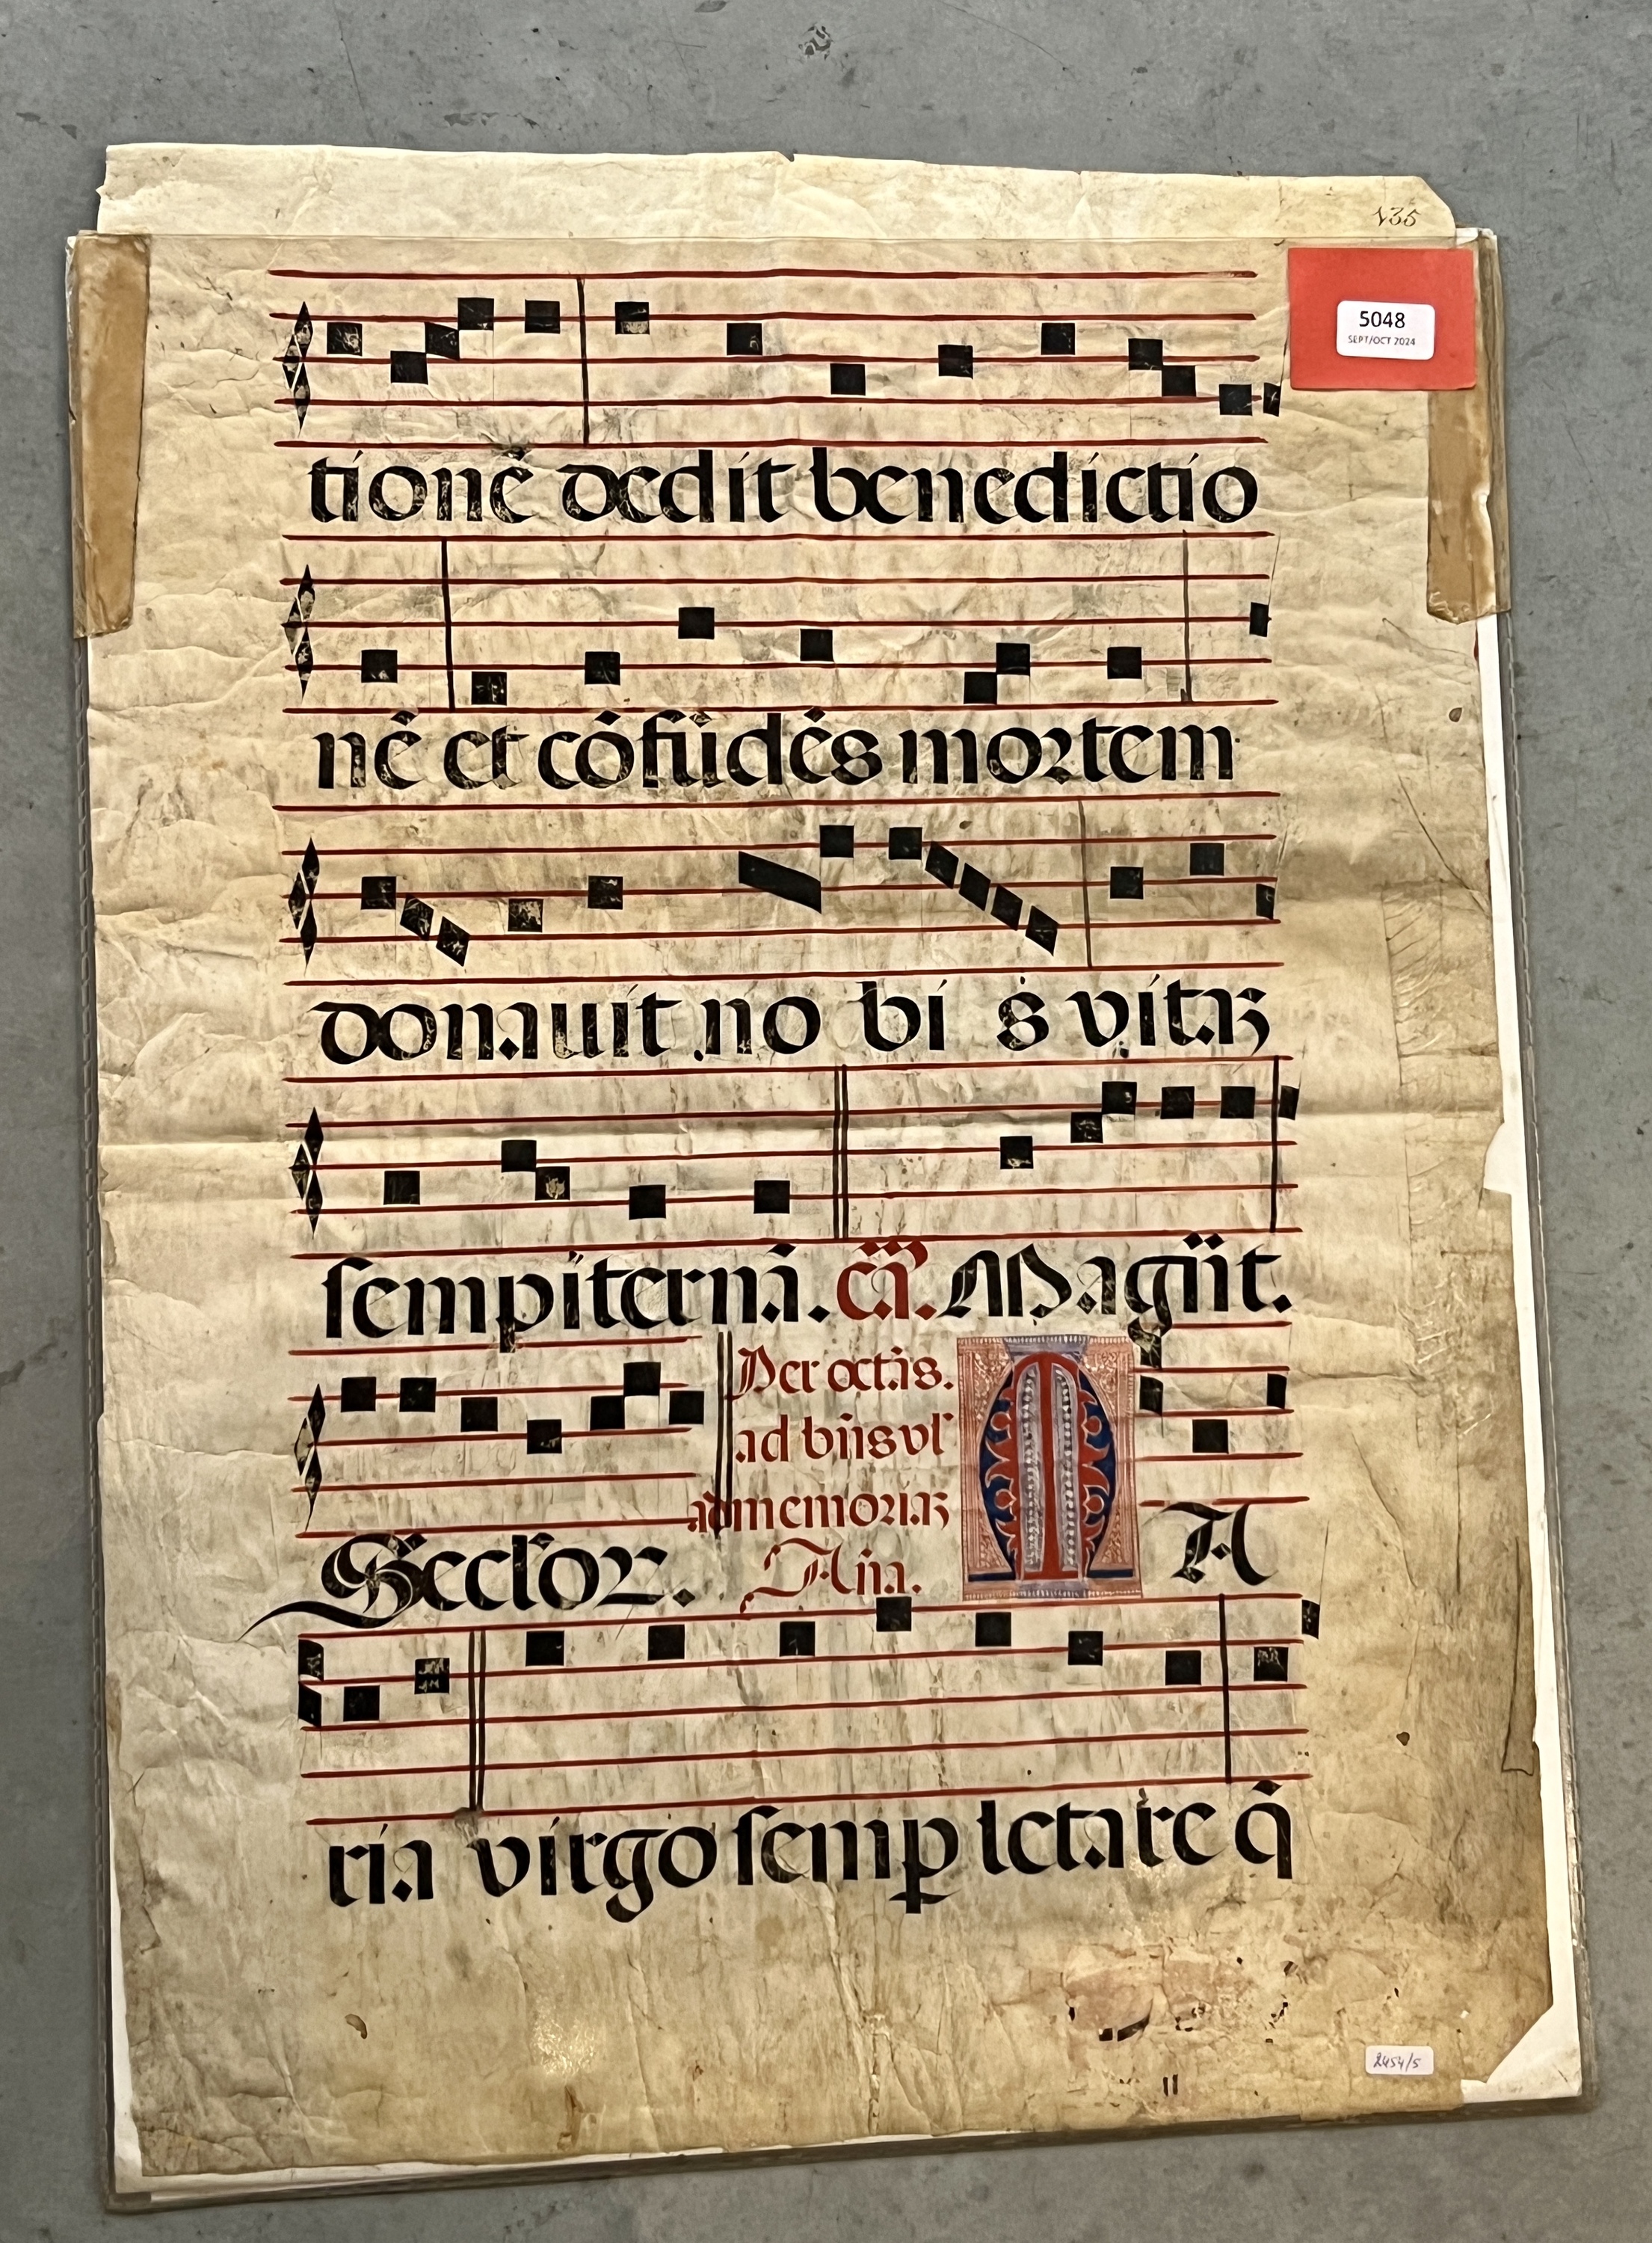 135
5048
SEPT/OCT 2024
tionē dedit benedictio
nē et cōfūdēs mortem
donauit no bi s vitaʒ
sempiternā. cā. Magn̄it.
Seclor.
Per octās.
ad bn̄s vl'
ad memoriaʒ
An̄a.
M A
ria virgo semꝑ letare q̄
2454/5